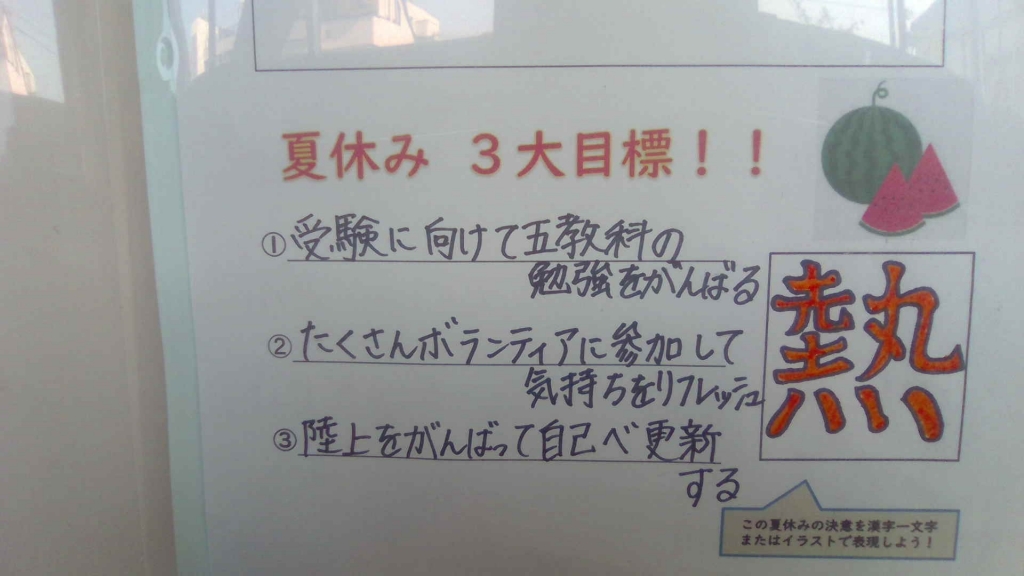 夏休み 3大目標！！
①受験に向けて五教科の
勉強をがんばる
②たくさんボランティアに参加して
気持ちをリフレッシュ
③陸上をがんばって自己ベ更新
する
熱
この夏休みの決意を漢字一文字
またはイラストで表現しよう！